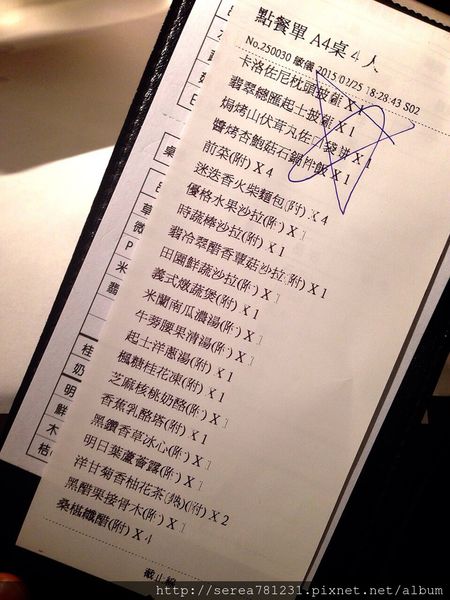 點餐單 A4桌 4 人
No.250030 敏儀 2015/01/25 18:28:43 S02
卡洛佐尼枕頭披薩 X 1
翡翠總匯起士披薩 X 1
焗烤山伏茸丸佐口袋餅 X 1
醬烤杏鮑菇石鍋拌飯 X 1
前菜(附) X 4
迷迭香火柴麵包(附) X 4
優格水果沙拉(附) X 1
時蔬棒沙拉(附) X 1
翡冷翠醋香蕈菇沙拉(附) X 1
田園鮮蔬沙拉(附) X 1
義式燉蔬煲(附) X 1
米蘭南瓜濃湯(附) X 1
牛蒡腰果清湯(附) X 1
起士洋蔥湯(附) X 1
楓糖桂花凍(附) X 1
芝麻核桃奶酪(附) X 1
香蕉乳酪塔(附) X 1
黑鑽香草冰心(附) X 1
明日葉蘆薈露(附) X 1
洋甘菊香柚花茶(熱)(附) X 2
黑醋栗接骨木(附) X 1
桑椹纖醋(附) X 4
桌
草
微
P
米
翡
桂
奶
明
鮮
木
桔
http://serea781231.pixnet.net/album